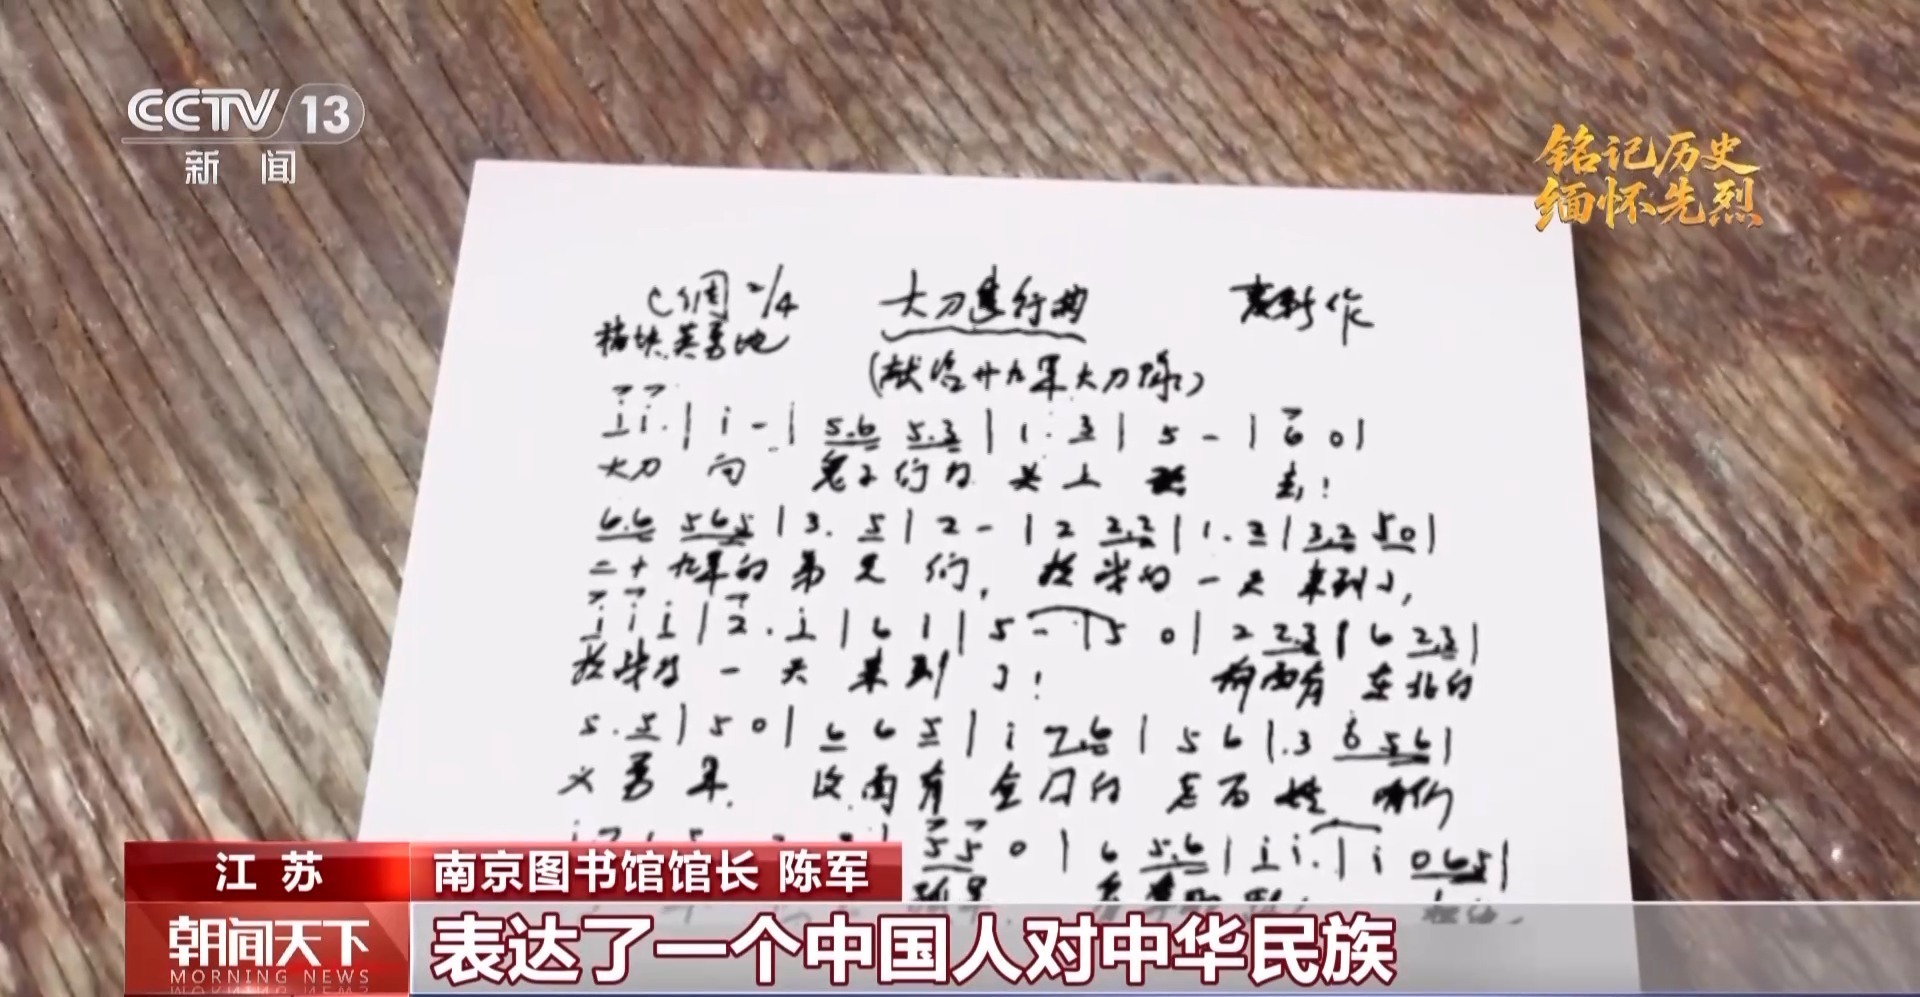 CCTV 13
新闻
铭记历史
缅怀先烈
C调 2/4 大刀进行曲 麦新作
(献给廿九军大刀队)
i i. | i - | 5.6 5.3 | 1. 3 | 5 - | 6 0 |
大刀 向 鬼子们的 头上 砍 去!
6.6 565 | 3. 5 | 2 - | 2 2.2 | 1. 2 | 3.2 50 |
二十九军的弟兄们, 抗战的一天来到了,
i i i | 2. i | 6 1 | 5 - | 5 0 | 2 2.3 | 6 2.3 |
抗战的一天来到了! 前面有东北的
5. 5 | 5 0 | 6 6 5 | i 7.6 | 5 6 | .3 6 56 |
义勇军, 后面有全国的老百姓 咱们
5 5 0 | 6 5.6 | i i. | i 065 |
江苏
南京图书馆馆长 陈军
朝闻天下
MORNING NEWS
表达了一个中国人对中华民族